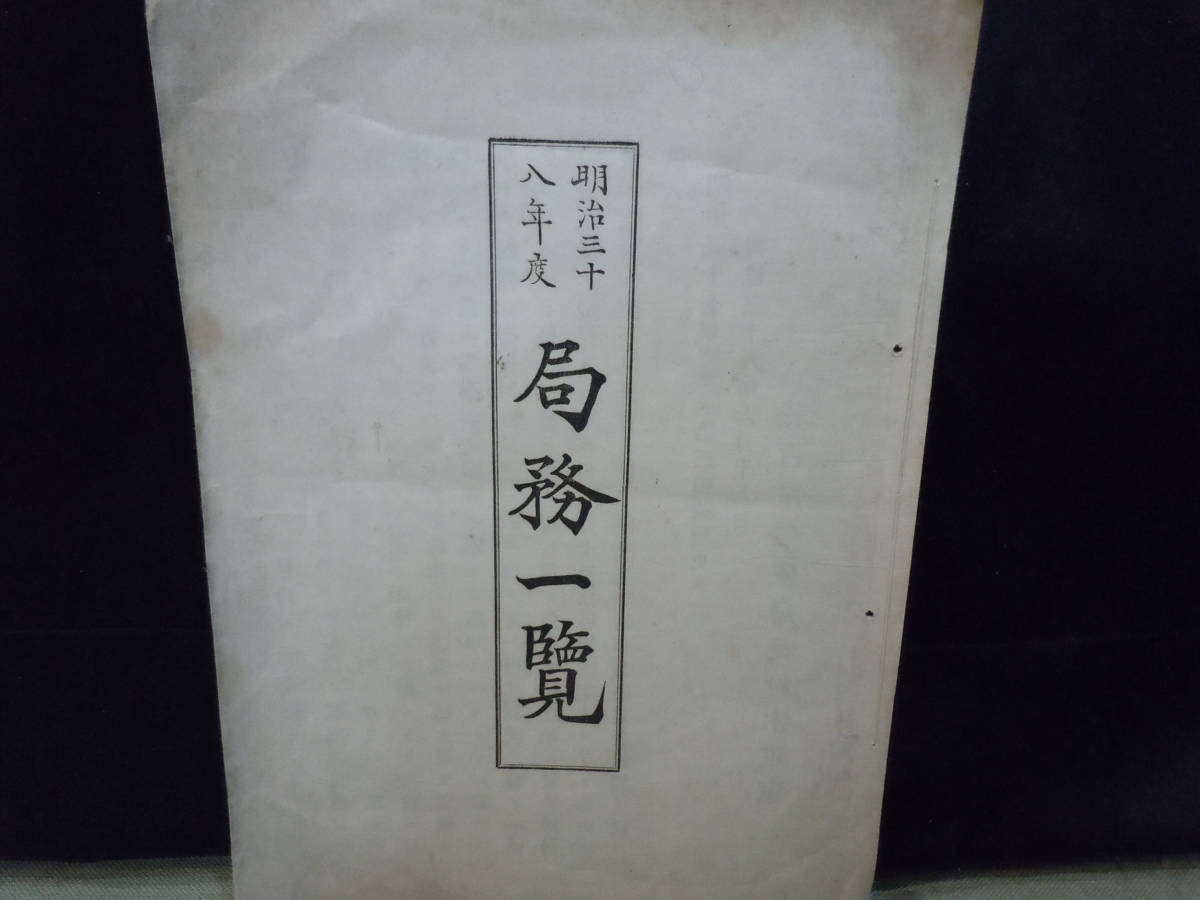 明治三十
八年度
局務一覽